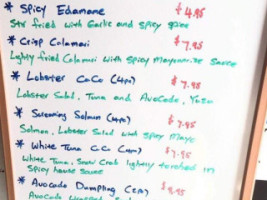 * Spicy Edamame $4.95
Stir fried with Garlic and Spicy
* Crisp Calamari $7.95
Lightly fried Calamari with Spicy Mayonnaise Sauce
* Lobster CoCo (4pc) $7.95
Lobster Salad, Tuna and Avocado, Yuzo
* Screaming Salmon (4pc) $7.95
Salmon, Lobster Salad with Spicy Mayo
* White Tuna CoCo (4pc) $7.95
White Tuna, Snow Crab lightly torched in
Spicy house sauce
* Avocado Dumpling (2pc) $8.95
Avocado